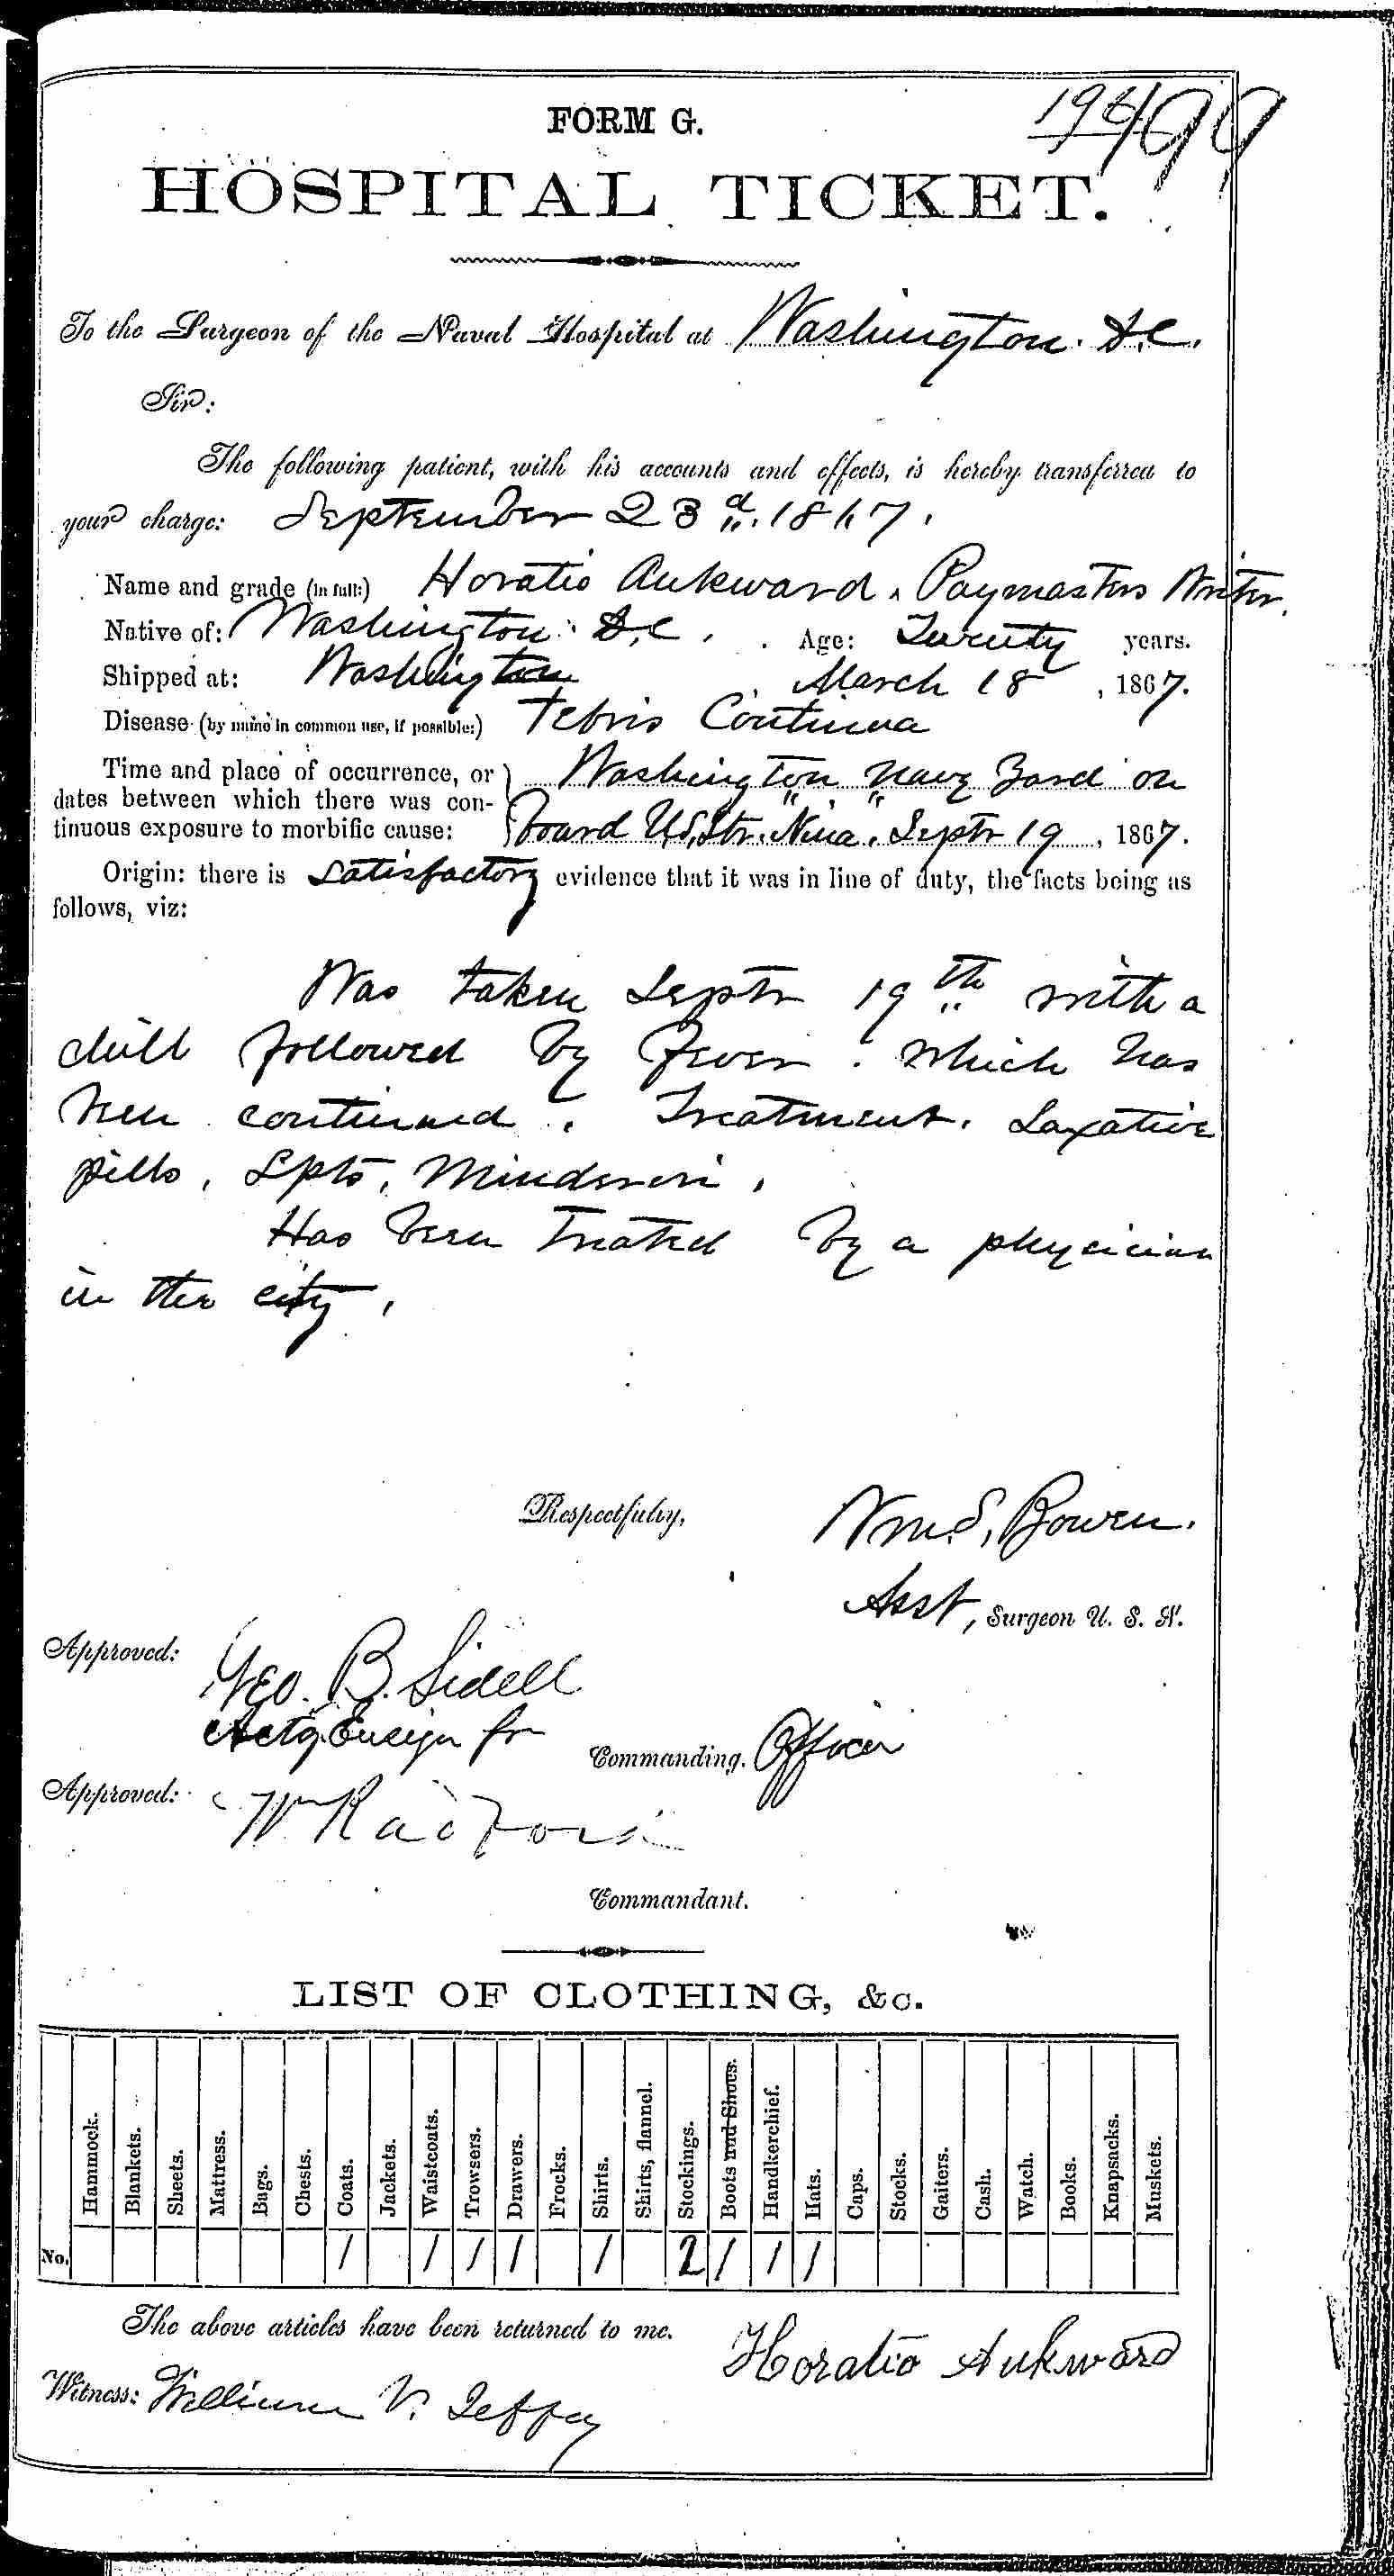 499
FORM G.
HOSPITAL TICKET.
To the Surgeon of the Naval Hospital at Washington. D.C.
Sir:
The following patient, with his accounts and effects, is hereby transferred to
your charge: September 23d. 1867.
Name and grade (in full:) Horatio Aukward. Paymasters Writer.
Native of: Washington D.C. Age: Twenty years.
Shipped at: Washington March 18, 1867.
Disease (by name in common use, if possible:) Febris Continua
Time and place of occurrence, or Washington Navy Yard on
dates between which there was con-
tinuous exposure to morbific cause: board U.S. Str. "Nina". Septr 19, 1867.
Origin: there is Satisfactory evidence that it was in line of duty, the facts being as
follows, viz:
Was taken Septr 19th with a
chill followed by fever. which has
been continued. Treatment. Laxative
pills, Spts, Mindereri.
Has been treated by a physician
in the city.
Respectfully, Wm. S. Bowen.
Asst, Surgeon U. S. N.
Approved: Geo. B. Sidell
Actg. Ensign for Commanding. Officer
Approved: W Radford
Commandant.
LIST OF CLOTHING, &c.
Hammock. Blankets. Sheets. Mattress. Bags. Chests. Coats. Jackets. Waistcoats. Trowsers. Drawers. Frocks. Shirts. Shirts, flannel. Stockings. Boots and Shoes. Handkerchief. Hats. Caps. Stocks. Gaiters. Cash. Watch. Books. Knapsacks. Muskets.
No. 1 1 1 1 1 2 1 1 1
The above articles have been returned to me. Horatio Aukward
Witness: William V.